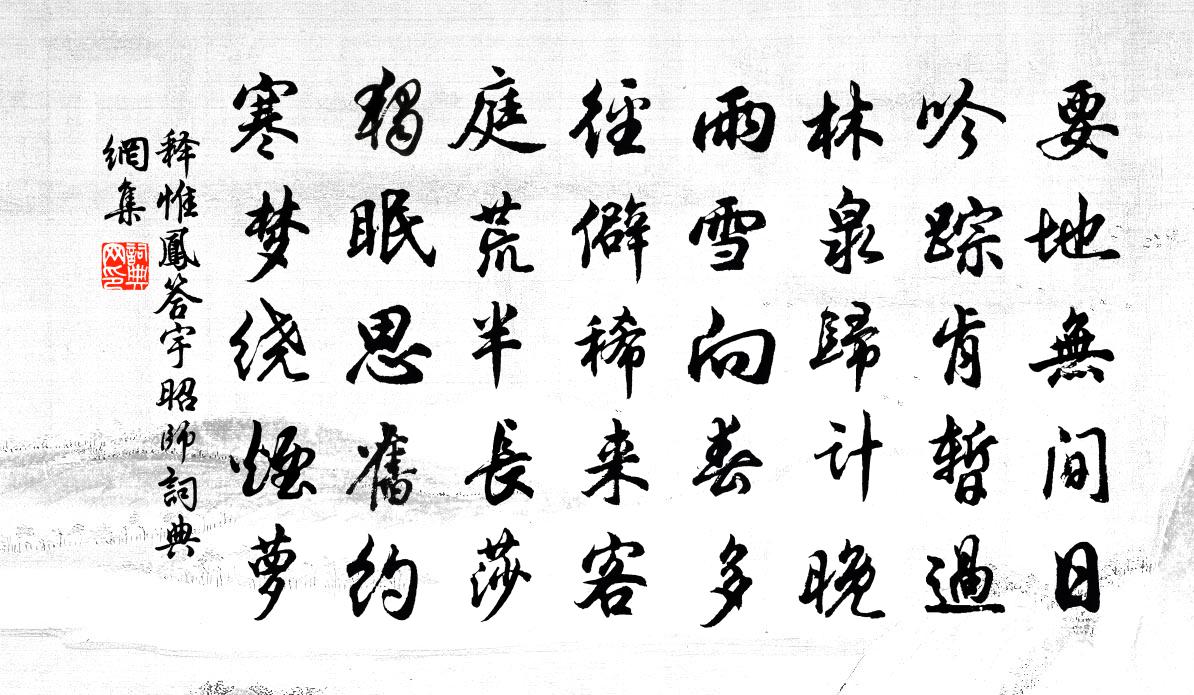 要地無閒日
吟踪肯暫過
林泉歸计晚
雨雪向春多
徑僻稀来客
庭荒半長莎
獨眠思舊约
寒梦绕煙萝
释惟鳳答宇昭師詞典
網集
詞典
网印